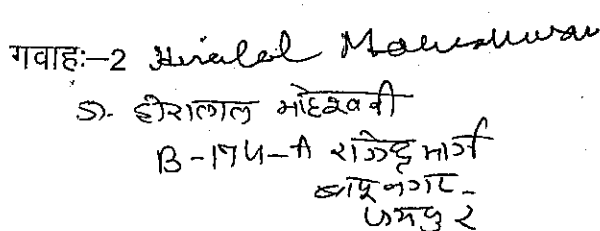 गवाहः–2 Hiralal Maheshwari
डा. हीरालाल माहेश्वरी
B-174-A राजेन्द्र मार्ग
बापू नगर-
जयपुर